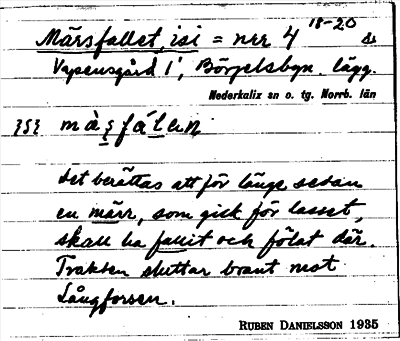 Märsfallet, isi = nrr 4 18-20 s.
Vapensgård 1', Börjelsbyn. lägg.
Nederkalix sn o. tg. Norrb. län
}S{ mà̀ʂfáḷən
det berättas att för länge sedan
en märr, som gick för lasset,
skall ha fallit och fölat där.
Trakten sluttar brant mot
Långforsen.
RUBEN DANIELSSON 1935